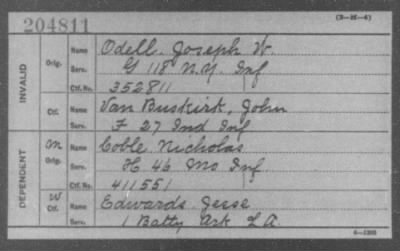 204811
(3-26-6)
INVALID
Orig.
Name Odell, Joseph W.
Serv. G 118 N.Y. Inf
Ctf. No. 352811
Ctf.
Name Van Buskirk, John
Serv. F 27 Ind Inf
DEPENDENT
M
Orig.
Name Coble Nicholas
Serv. H 46 Mo Inf
Ctf. No. 411551
W
Ctf.
Name Edwards Jesse
Serv. 1 Batty Ark L A